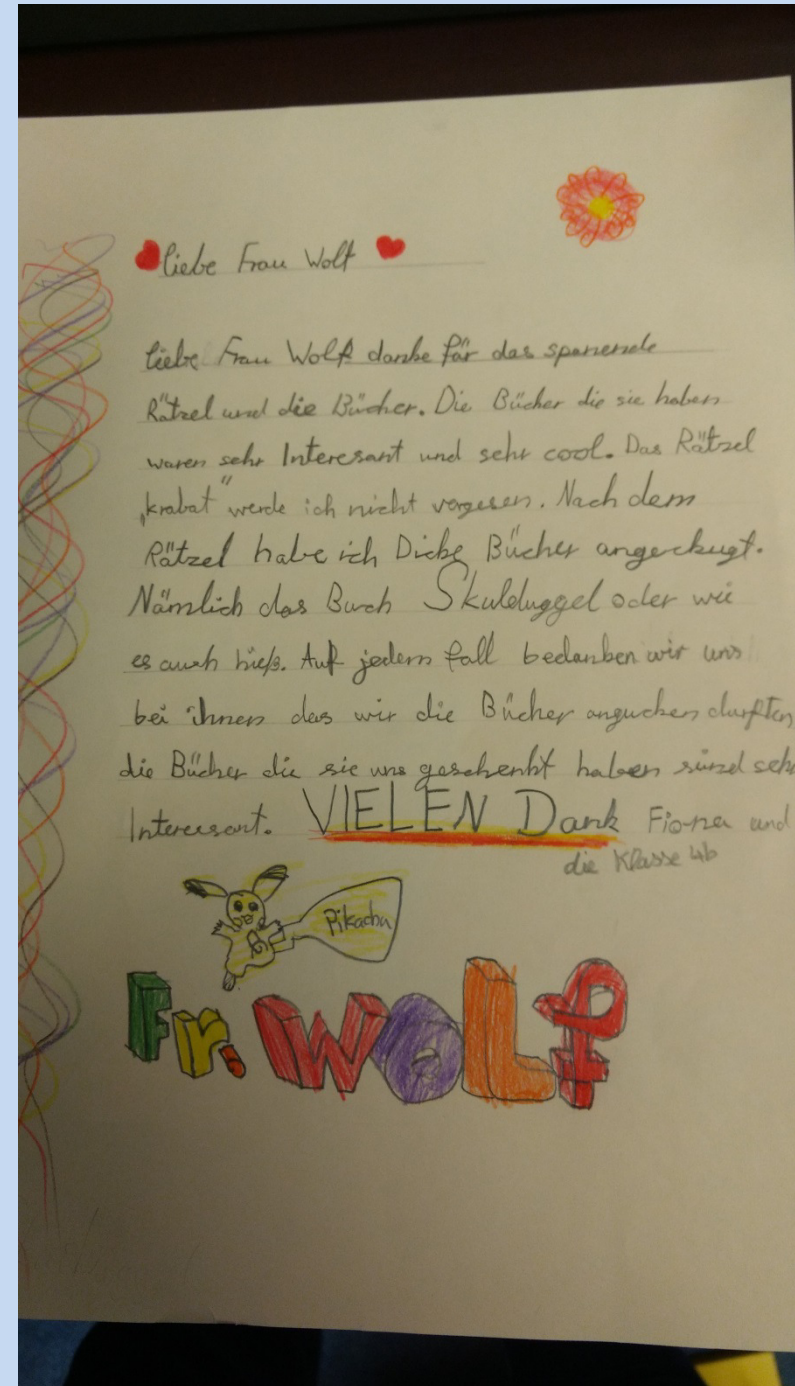 liebe Frau Wolf
liebe Frau Wolf danke für das spanende
Rätzel und die Bücher. Die Bücher die sie haben
waren sehr Interesant und sehr cool. Das Rätzel
„krabat“ werde ich nicht vergesen. Nach dem
Rätzel habe ich Dicke Bücher angeckugt.
Nämlich das Buch Skulduggel oder wie
es auch hieß. Auf jedem fall bedanken wir uns
bei ihnen das wir die Bücher angucken durften
die Bücher die sie uns geschenkt haben sind sehr
Interesant. VIELEN Dank Fiona und
die Klasse 4b
Pikachu
Fr. WOLf